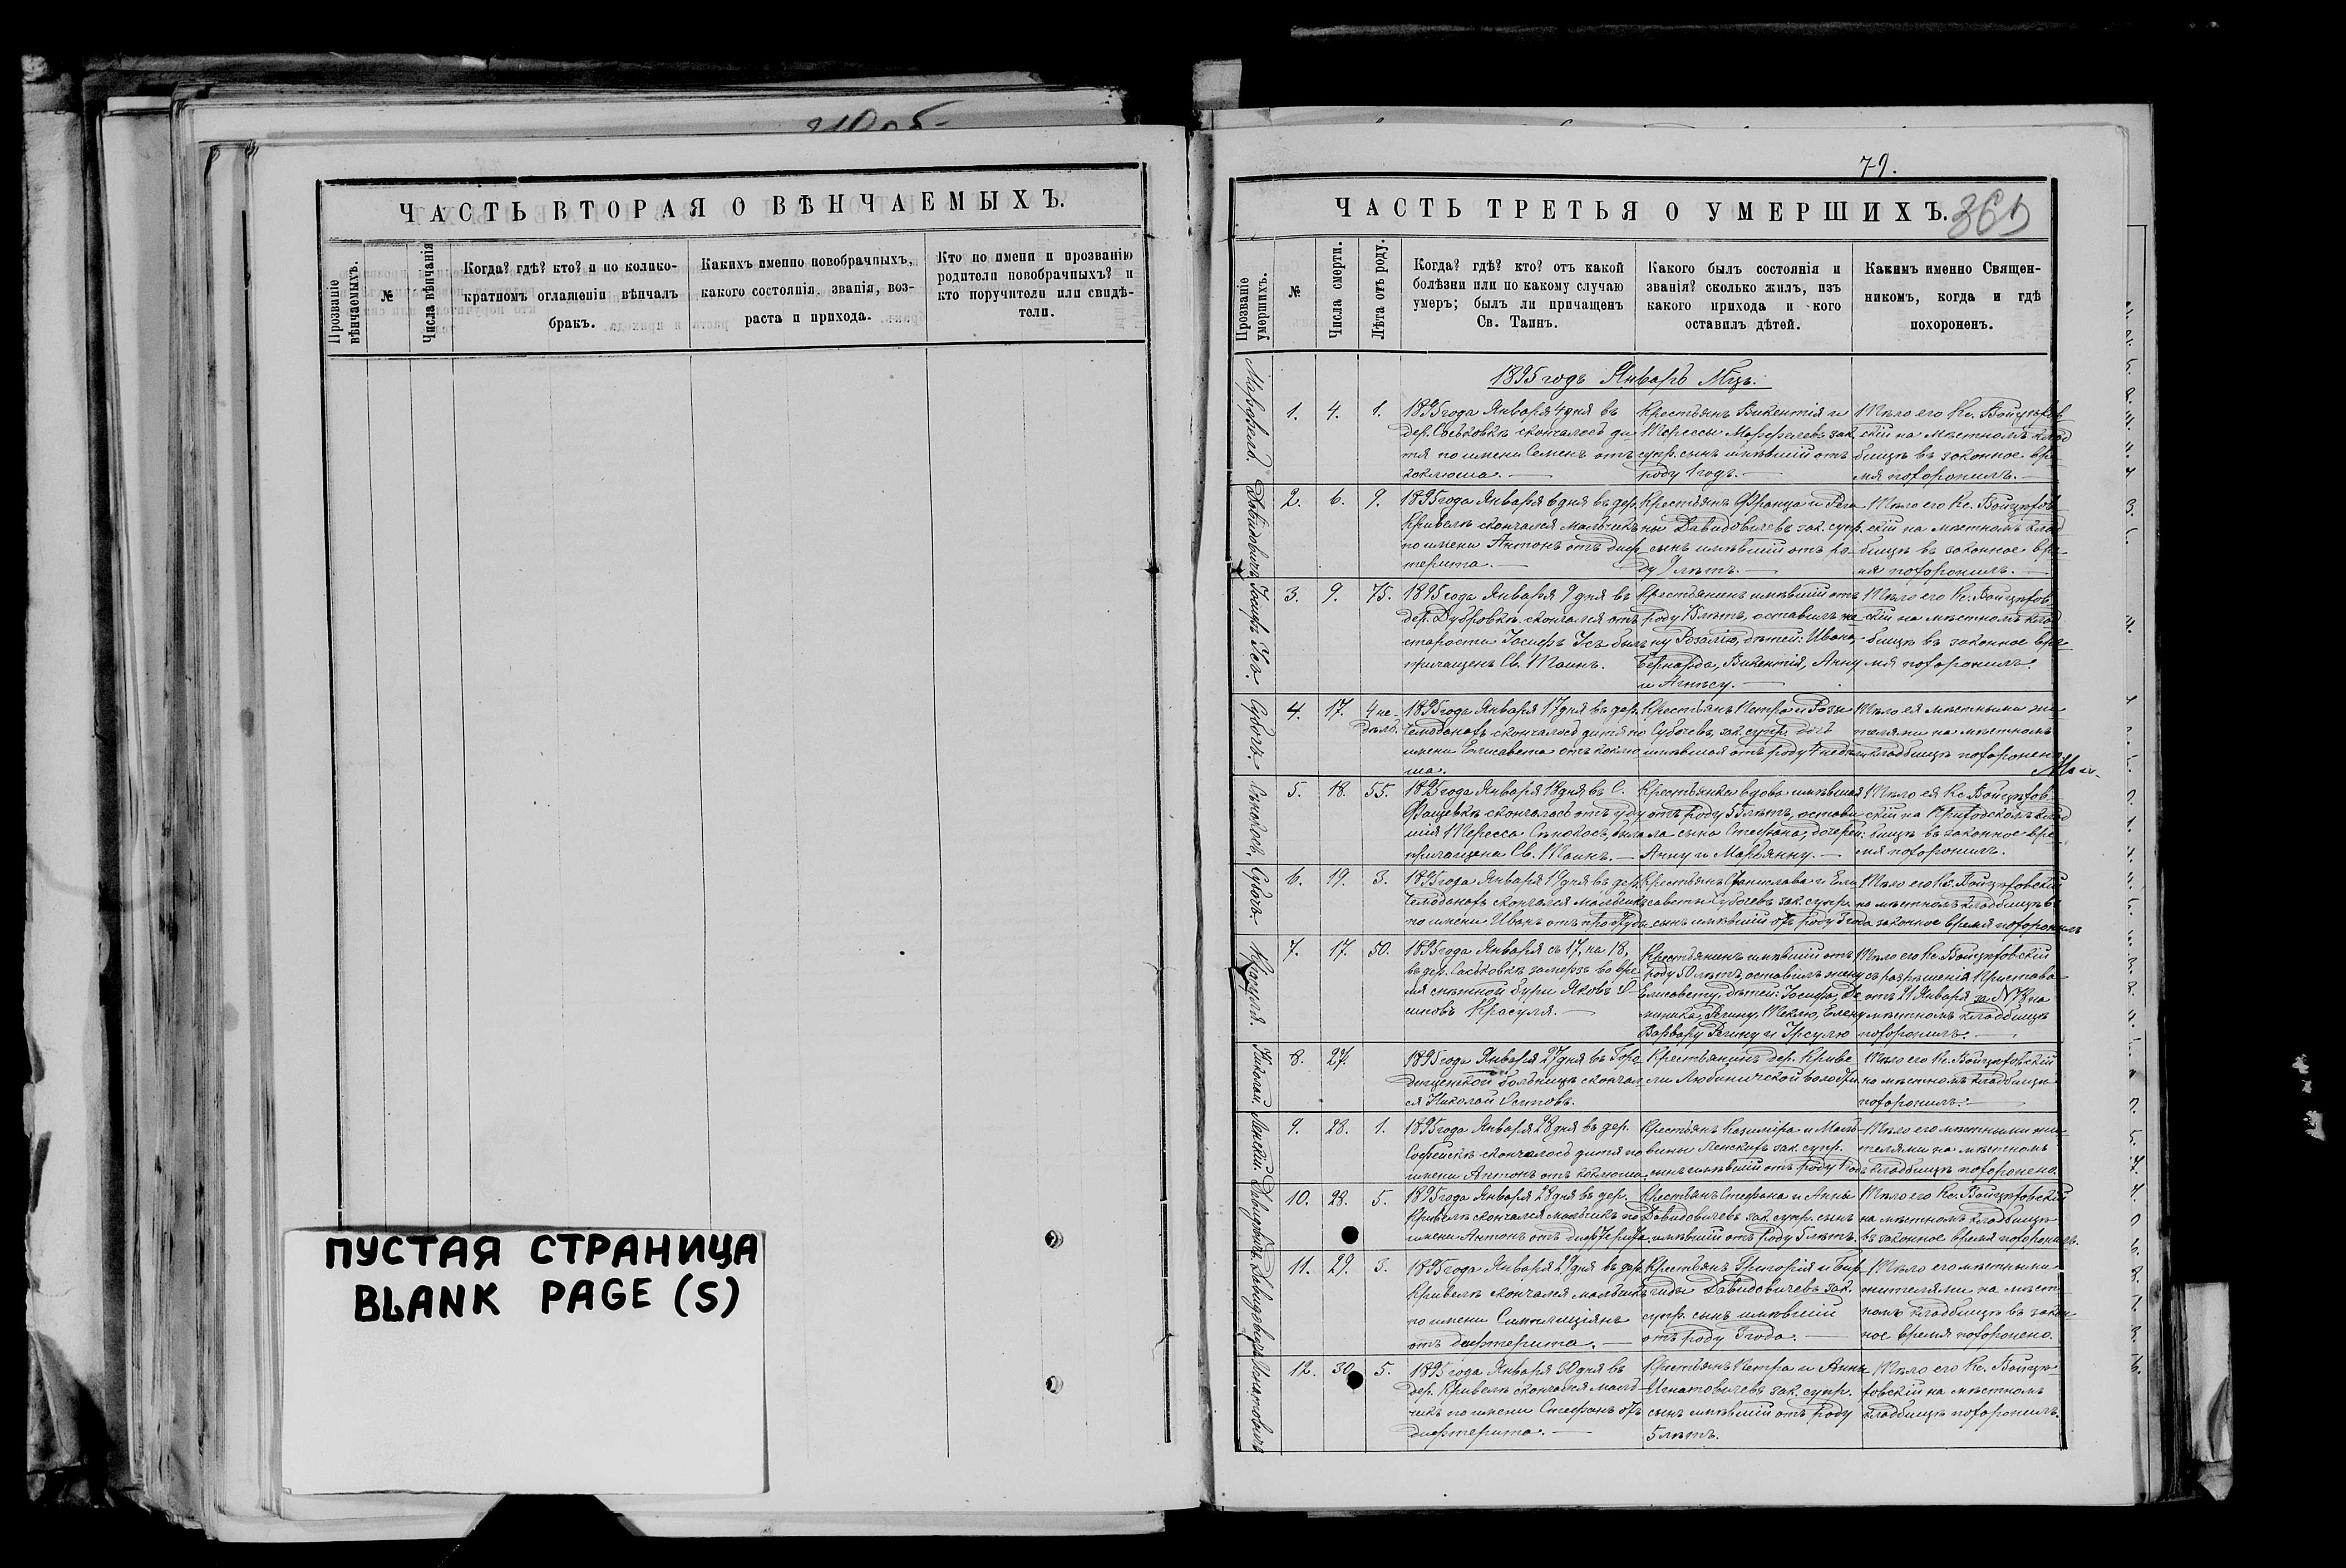 ЧАСТЬ ВТОРАЯ О ВѢНЧАЕМЫХЪ.
Прозваніе вѣнчаемыхъ.
№
Числа вѣнчанія
Когда? гдѣ? кто? и по колико-
кратномъ оглашеніи вѣнчалъ
бракъ.
Какихъ именно новобрачныхъ,
какого состоянія, званія, воз-
раста и прихода.
Кто по имени и прозванію
родители новобрачныхъ? и
кто поручители или свидѣ-
тели.
ПУСТАЯ СТРАНИЦА
BLANK PAGE (S)
79.
ЧАСТЬ ТРЕТЬЯ О УМЕРШИХЪ.
Прозваніе умершихъ.
№
Числа смерти.
Лѣта отъ роду.
Когда? гдѣ? кто? отъ какой
болѣзни или по какому случаю
умеръ; былъ ли причащенъ
Св. Таинъ.
Какого былъ состоянія и
званія? сколько жилъ, изъ
какого прихода и кого
оставилъ дѣтей.
Какимъ именно Священ-
никомъ, когда и гдѣ
похороненъ.
1895 годъ Январь Мцъ.
1. 4. 1.
1895 года Января 4 дня въ
скончалось ди
тя по имени Семенъ отъ
коклюша.
Крестьянъ Викентія и
Терессы зак.
супр. сынъ имѣвшій отъ
роду 1 годъ.
Тѣло его Кс. Войцѣхов
скій на мѣстномъ клад
бищѣ въ законное вре
мя похоронилъ.
Давидовичъ
2. 6. 9.
1895 года Января 6 дня въ дер.
Кривелѣ скончался мальчикъ
по имени Антонъ отъ диф
терита.
Крестьянъ Франца и Реги
ны Давидовичевъ зак. супр.
сынъ имѣвшій отъ ро-
ду 9 лѣтъ.
Тѣло его Кс. Войцѣхов-
скій на мѣстномъ клад
бищѣ въ законное вре-
мя похоронилъ.
Іосифъ Усъ.
3. 9. 75.
1895 года Января 9 дня въ
дер. Дубровкѣ скончался отъ
старости Іосифъ Усъ былъ
причащенъ Св. Таинъ.
Крестьянинъ имѣвшій отъ
роду 75 лѣтъ, оставилъ же
ну Розалію, дѣтей: Ивана,
Бернарда, Викентія, Анну
и Агнѣсу.
Тѣло его Кс. Войцѣхов-
скій на мѣстномъ клад
бищѣ въ законное вре
мя похоронилъ.
Субочъ.
4. 17. 4 не-
дѣль.
1895 года Января 17 дня въ дер.
Чемоданахъ скончалось дитя по
имени Елисавета отъ коклю
ша.
Крестьянъ Петра и Розы
Субочевъ, зак. супр. дочь
имѣвшая отъ роду 4 недѣли
Тѣло ея мѣстными жи
телями на мѣстномъ
кладбищѣ похоронено.
Сѣнокосъ.
5. 18. 55.
1895 года Января 18 дня въ С.
Фащевкѣ скончалась отъ уду
шія Тересса Сѣнокосъ, была
причащена Св. Таинъ.
Крестьянка вдова имѣвшая
отъ роду 55 лѣтъ, остави
ла сына Стефана, дочерей:
Анну и Марьянну.
Тѣло ея Кс. Войцѣхов-
скій на Приходскомъ клад
бищѣ въ законное вре
мя похоронилъ.
Субочъ
6. 19. 3.
1895 года Января 19 дня въ дер.
Чемоданахъ скончался мальчикъ
по имени Иванъ отъ простуды
Крестьянъ Станислава и Ели
саветы Субочевъ зак. супр.
сынъ имѣвшій отъ роду 3 года
Тѣло его Кс. Войцѣховскій
на мѣстномъ кладбищѣ въ
законное время похоронилъ
Красуля.
7. 17. 50.
1895 года Января съ 17, на 18,
въ дер. замерзъ во вре
мя снѣжной бури Яковъ О-
сиповъ Красуля.
Крестьянинъ имѣвшій отъ
роду 50 лѣтъ, оставилъ жену
Елисавету, дѣтей: Іосифа, До
миника, Регину, Теклю, Елену
Варвару Регину и Урсулю
Тѣло его Кс. Войцѣховскій
съ разрѣшенія Пристава
отъ 21 Января за № 78 на
мѣстномъ кладбищѣ
похоронилъ.
Николай.
8. 27.
1895 года Января 27 дня въ Горо
дищенской больницѣ скончал
ся Николай Осиповъ.
Крестьянинъ дер. Криве
ли Любиничской волости.
Тѣло его Кс. Войцѣховскій
на мѣстномъ кладбищѣ
похоронилъ.
Ленскій.
9. 28. 1.
1895 года Января 28 дня въ дер.
Софейскѣ скончалось дитя по
имени Антонъ отъ коклюша.
Крестьянъ Казиміра и Маль-
вины Ленскихъ зак. супр.
сынъ имѣвшій отъ роду 1 годъ
Тѣло его мѣстными жи-
телями на мѣстномъ
кладбищѣ похоронено.
Давидовичъ.
10. 28. 5.
1895 года Января 28 дня въ дер.
Кривелѣ скончался мальчикъ по
имени Антонъ отъ дифтерита.
Крестьянъ Стефана и Анны
Давидовичевъ зак. супр. сынъ
имѣвшій отъ роду 5 лѣтъ.
Тѣло его Кс. Войцѣховскій
на мѣстномъ кладбищѣ
въ законное время похоронилъ.
Давидовичъ
11. 29. 3.
1895 года Января 29 дня въ дер.
Кривелѣ скончался мальчикъ
по имени
отъ дифтерита.
Крестьянъ Григорія и Бир
гиды Давидовичевъ зак.
супр. сынъ имѣвшій
отъ роду 3 года.
Тѣло его мѣстными
жителями на мѣст
номъ кладбищѣ въ закон
ное время похоронено.
Игнатовичъ
12. 30. 5.
1895 года Января 30 дня въ
дер. Кривелѣ скончался маль-
чикъ по имени Стефанъ отъ
дифтерита.
Крестьянъ Петра и Анны
Игнатовичевъ зак. супр.
сынъ имѣвшій отъ роду
5 лѣтъ.
Тѣло его Кс. Войцѣ
ховскій на мѣстномъ
кладбищѣ похоронилъ.